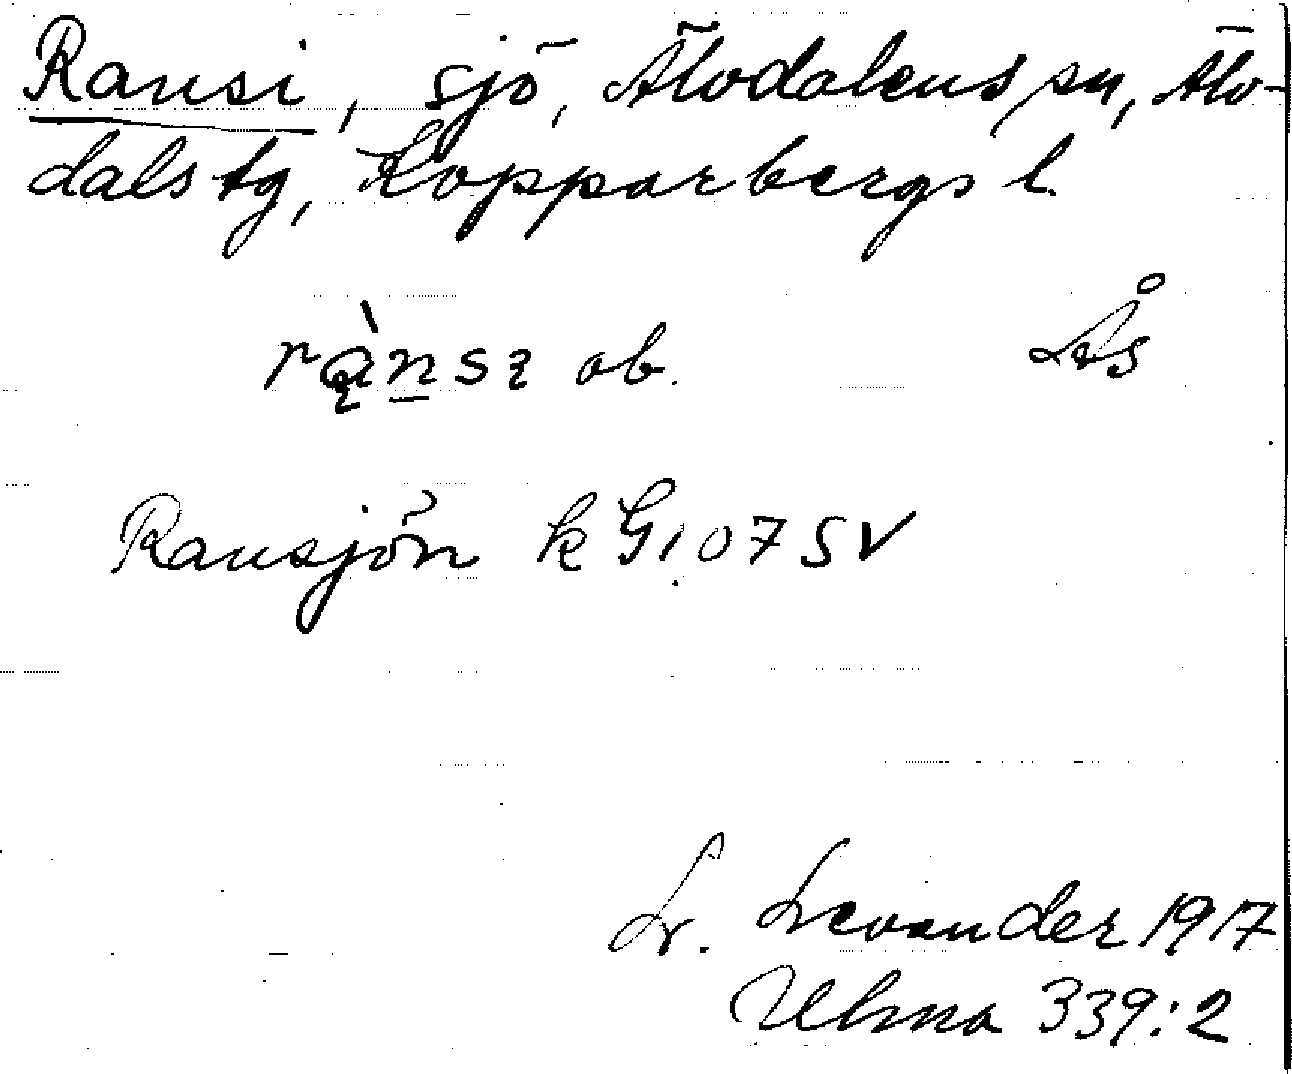 Ransi, sjö, Älvdalens sn, Älv-
dals tg, Kopparbergs l.
rànsı ob. Lås
Ransjön k G:107 SV
L. Levander 1917
Ulma 339:2